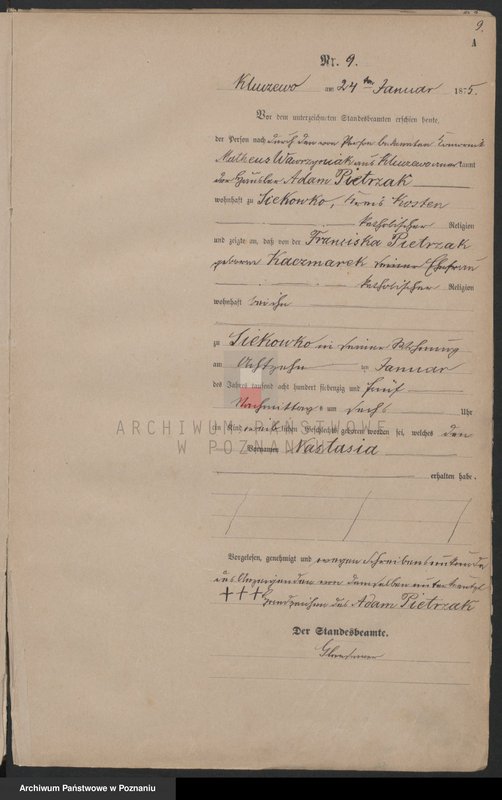 9.
A
Nr. 9.
Kluczewo am 24ten Januar 1875.
Vor dem unterzeichneten Standesbeamten erschien heute,
der Person nach durch den von Person bekannten
Matheus Wawrzyniak aus Kluczewo anerkannt
der Häusler Adam Pietrzak
wohnhaft zu Siekowko, Kreis Kosten
katholischer Religion
und zeigte an, daß von der Franciska Pietrzak
geborne Kaczmarek seiner Ehefrau
katholischer Religion
wohnhaft bei ihm
zu Siekowko in seiner Wohnung
am Achtzehn ten Januar
des Jahres tausend acht hundert siebenzig und fünf
Nachmittags um sechs Uhr
ein Kind weiblichen Geschlechts geboren worden sei, welches den
Vornamen Nastasia
erhalten habe.
Vorgelesen, genehmigt und wegen Schreibensunkunde
des Anzeigenden von demselben unterkreuzt
+++ Handzeichen des Adam Pietrzak
Der Standesbeamte.
ARCHIWUM PAŃSTWOWE
W POZNANIU
Archiwum Państwowe w Poznaniu